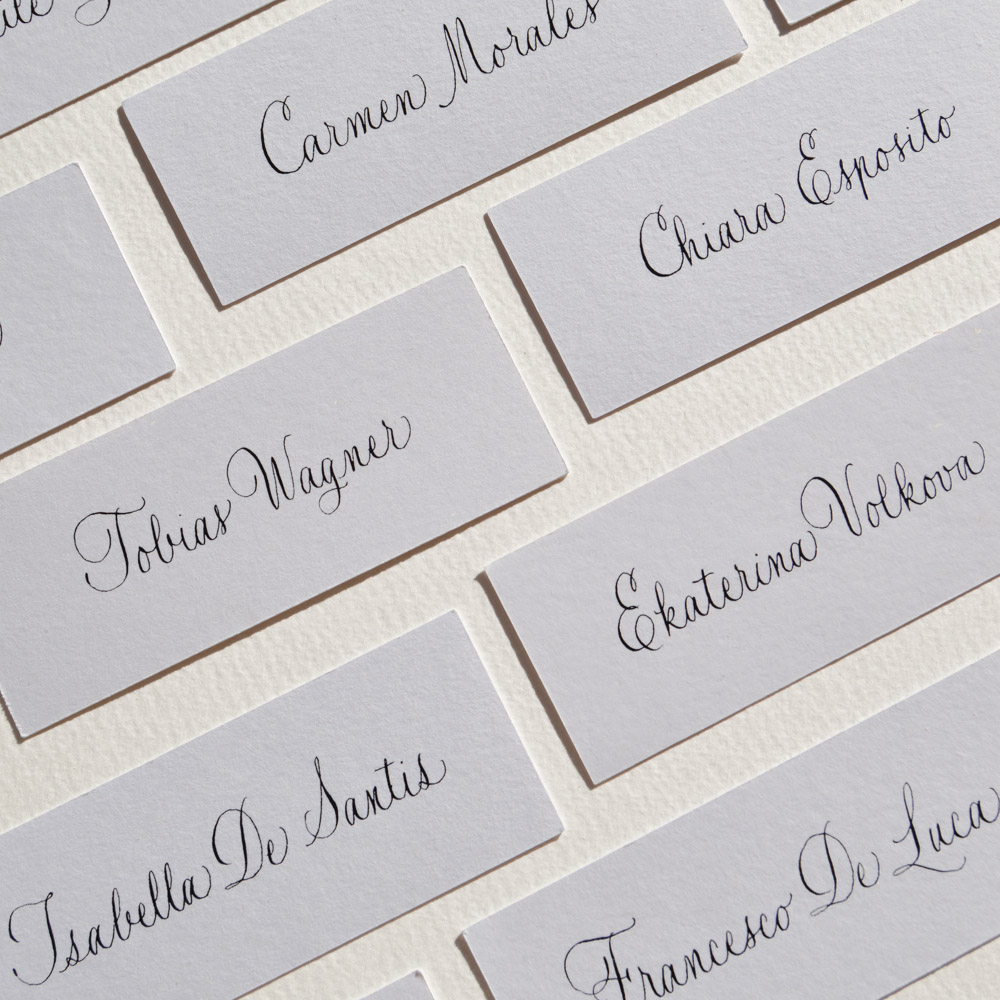 Carmen Morales
Chiara Esposito
Tobias Wagner
Ekaterina Volkova
Isabella De Santis
Francesco De Luca